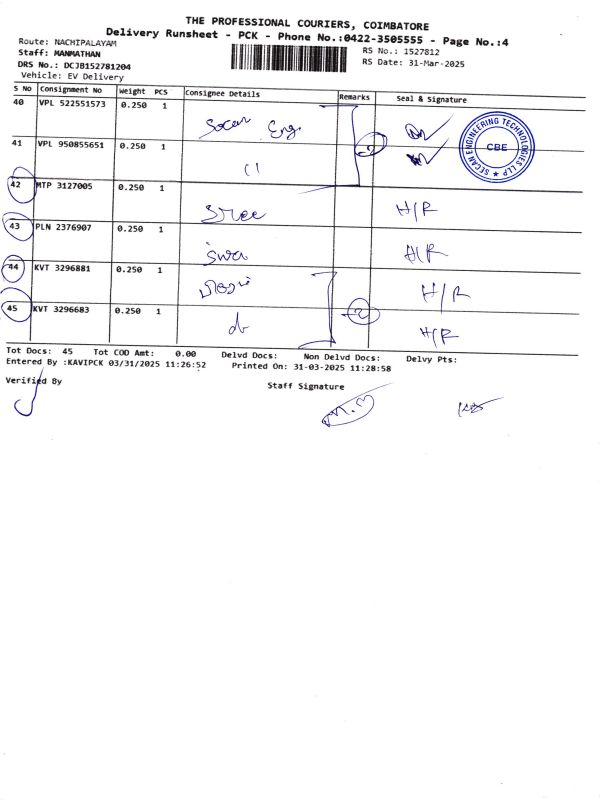 THE PROFESSIONAL COURIERS, COIMBATORE
Delivery Runsheet - PCK - Phone No.:0422-3505555 - Page No.:4
Route: NACHIPALAYAM
Staff: MANMATHAN
DRS No.: DCJB152781204
Vehicle: EV Delivery
RS No.: 1527812
RS Date: 31-Mar-2025
S No Consignment No Weight PCS Consignee Details Remarks Seal & Signature
40 VPL 522551573 0.250 1
Secan Eng
41 VPL 950855651 0.250 1
11
2
SECAN ENGINEERING TECHNOLOGIES LLP ★
CBE
42 MTP 3127005 0.250 1
Sree H/R
43 PLN 2376907 0.250 1
Siva H/R
44 KVT 3296881 0.250 1
H/R
45 KVT 3296683 0.250 1
2
do H/R
Tot Docs: 45 Tot COD Amt: 0.00 Delvd Docs: Non Delvd Docs: Delvy Pts:
Entered By :KAVIPCK 03/31/2025 11:26:52 Printed On: 31-03-2025 11:28:58
Verified By Staff Signature